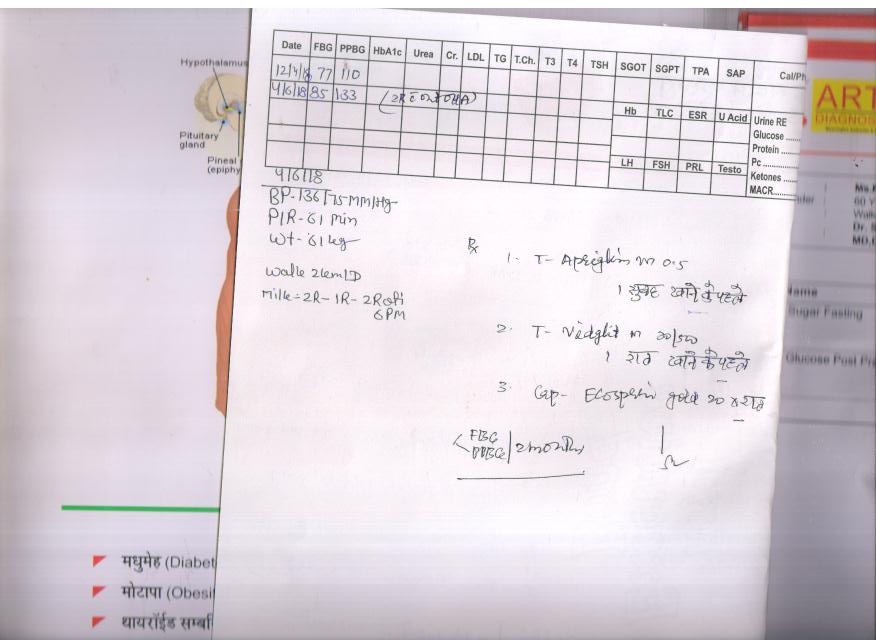 Hypothalamus
Pituitary
gland
Pineal
(epiphy
Date FBG PPBG HbA1c Urea Cr. LDL TG T.Ch. T3 T4 TSH SGOT SGPT TPA SAP Cal/Ph
12/4/18 77 110
4/6/18 85 133
Hb TLC ESR U Acid Urine RE
Glucose ......
Protein ......
LH FSH PRL Testo Pc ......
Ketones ......
MACR......
4/6/18
BP-136/75 MM/Hg
P/R-61 Min
Wt-61 kg
Walk 2km/D
Milk=2R-1R-2R
6PM
Rx
1. T- m 0.5
1 सुबह खाने के पहले
2. T- m 20/500
1 रात खाने के पहले
3. Cap- Ecosprin gold 20 x रात
FBG
PPBG / 2 months
ART
DIAGNOS
Ms.
60 Y
Dr.
MD.
Name
Sugar Fasting
Glucose Post Pr
मधुमेह (Diabet
मोटापा (Obesi
थायरॉईड सम्ब